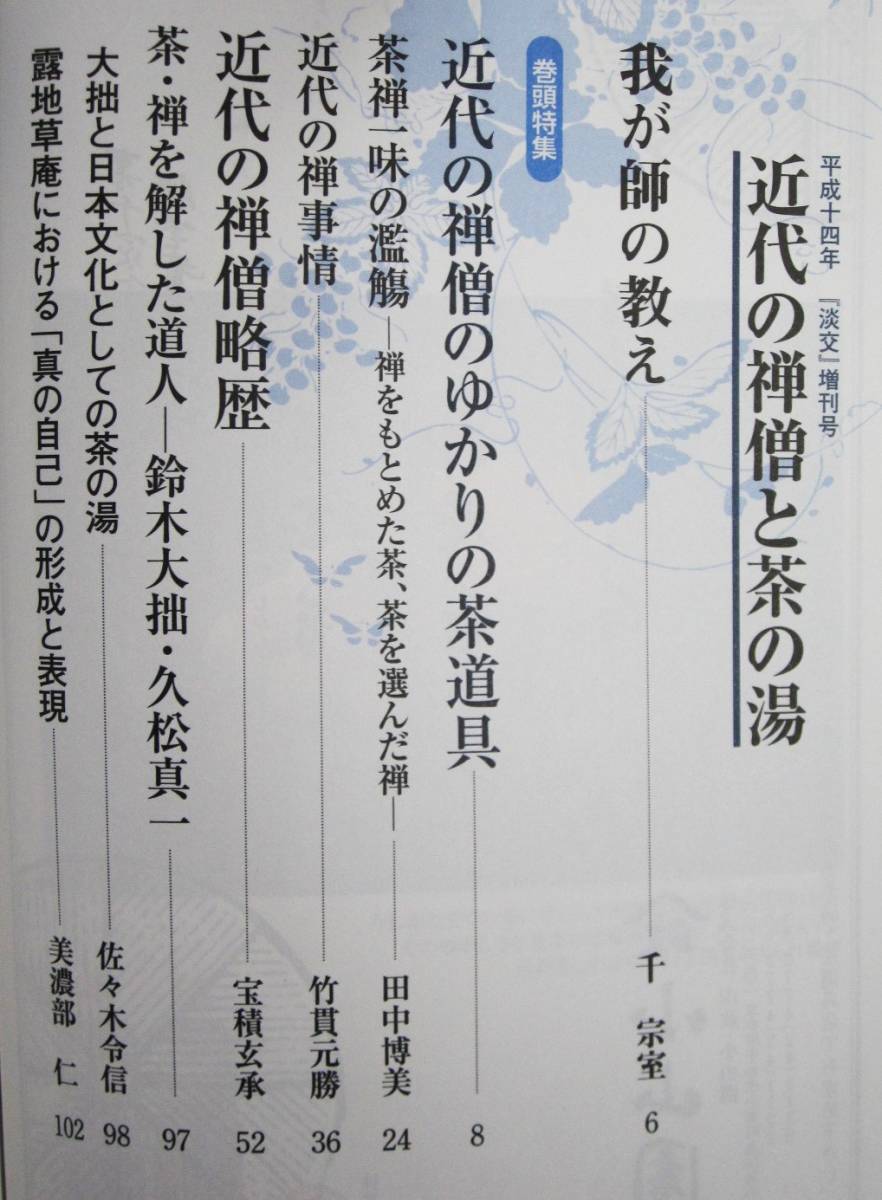 平成十四年 『淡交』増刊号
近代の禅僧と茶の湯
我が師の教え 千 宗室 6
巻頭特集
近代の禅僧のゆかりの茶道具 8
茶禅一味の濫觴―禅をもとめた茶、茶を選んだ禅― 田中博美 24
近代の禅事情 竹貫元勝 36
近代の禅僧略歴 宝積玄承 52
茶・禅を解した道人―鈴木大拙・久松真一 97
大拙と日本文化としての茶の湯 佐々木令信 98
露地草庵における「真の自己」の形成と表現 美濃部 仁 102